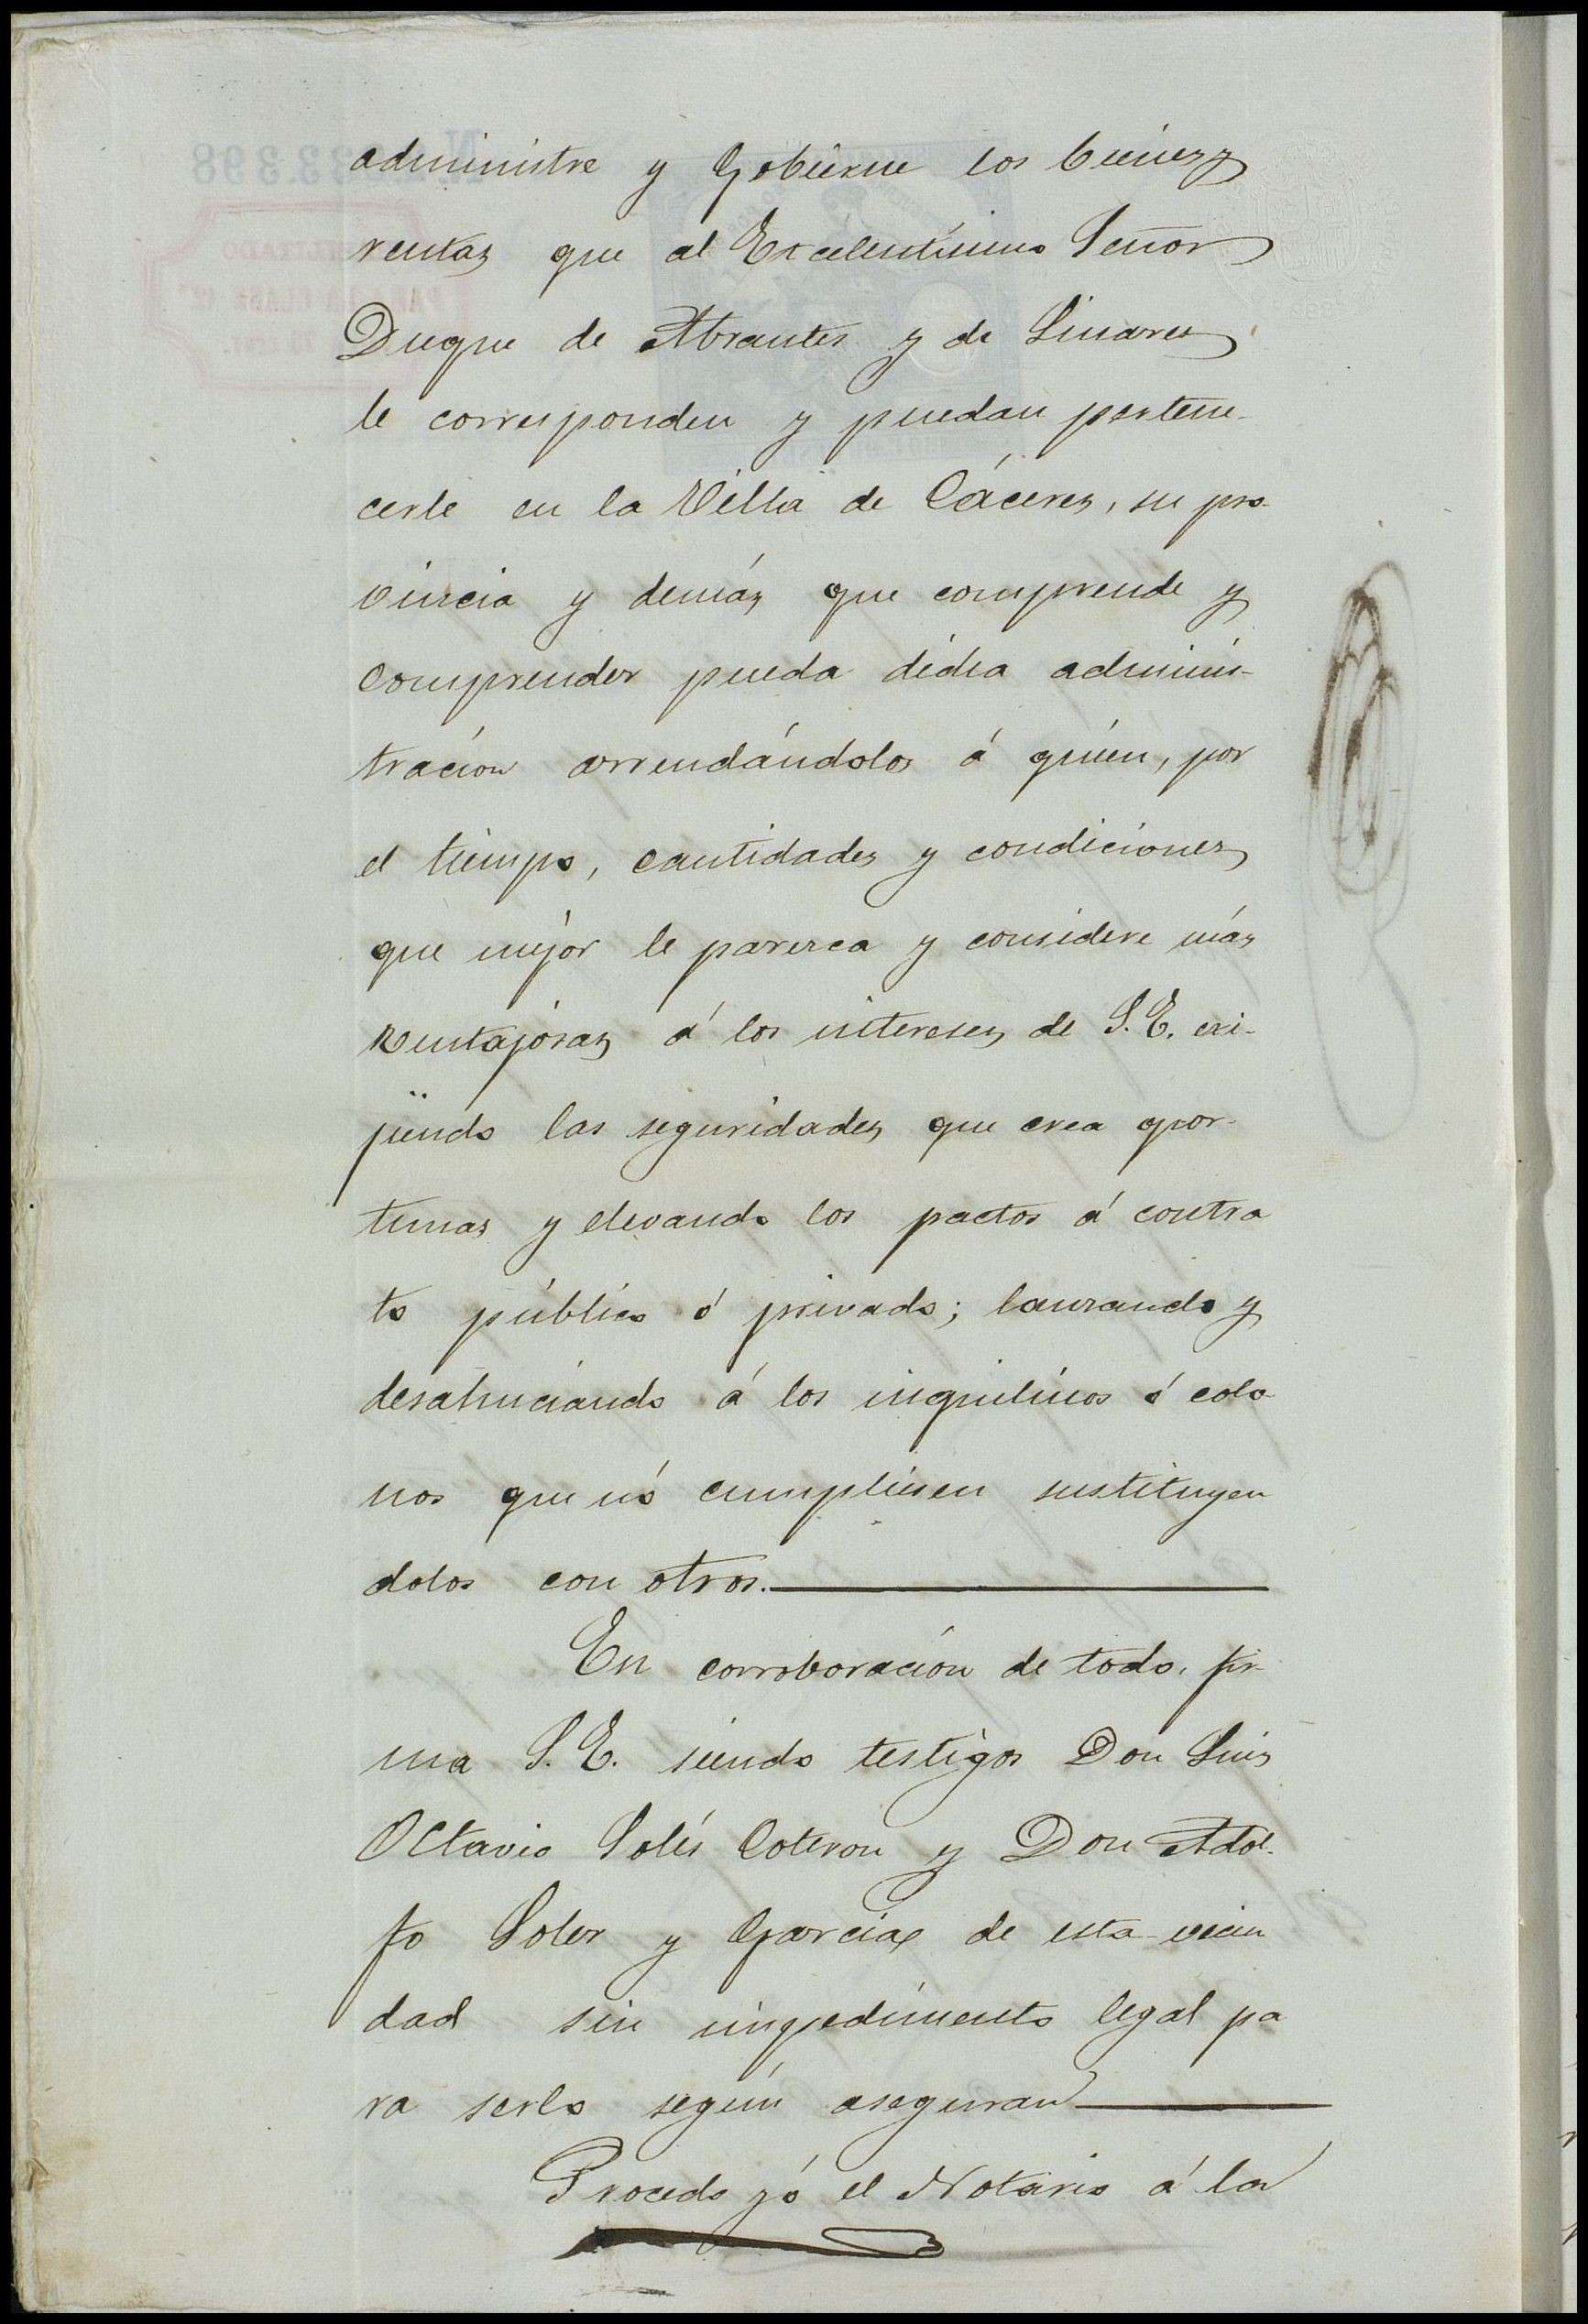 administre y Gobierne los bienes y
rentas que al Excelentísimo Señor
Duque de Abrantes y de Linares
le corresponden y puedan pertene-
cerle en la Villa de Cáceres, su pro-
vincia y demás que comprende y
comprender pueda dicha adminis-
tracion arrendándolos á quien, por
el tiempo, cantidades y condiciones
que mejor le parezca y considere más
ventajosas á los intereses de S.E. exi-
jiendo las seguridades que crea opor-
tunas y elevando los pactos á contra
to público ó privado; lanzando y
desahuciando á los inquilinos ó colo
nos que nó cumpliesen sustituyen
dolos con otros.
En corroboración de todo, fir-
ma S.E. siendo testigos Don Luis
Octavio Solís Coteron y Don Adol-
fo Soler y Garcia, de esta vecin
dad sin impedimento legal pa
ra serlo según aseguran
Procedo yó el Notario á la